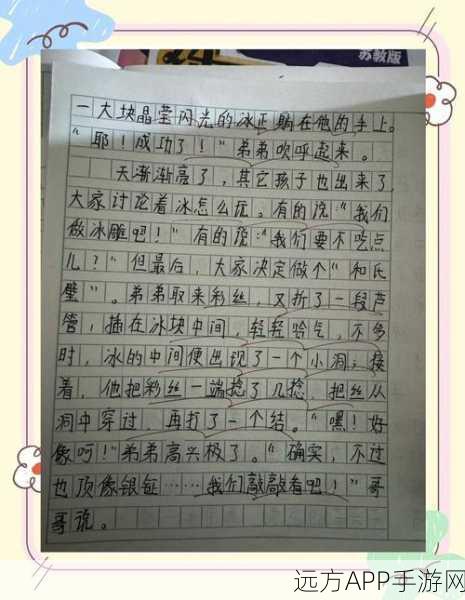 苏教版
一大块晶莹闪光的冰正躺在他的手上。
“耶！成功了！”弟弟吹呼起来。
天渐渐亮了，其它孩子也出来了，
大家讨论着冰怎么玩。有的说：“我们
做冰雕吧！”有的说：“我们要不吃点
儿？”但最后，大家决定做个“和氏
璧”。弟弟取来彩丝，又折了一段芦
管，插在冰块中间，轻轻哈气，不多
时，冰的中间便出现了一个小洞；接
着，他把彩丝一端捻了几捻，把丝从
洞中穿过，再打了一个结。“嘿！好
像呵！”弟弟高兴极了。“确实，不过
也顶像银钲……我们敲敲看吧！”哥
哥说。
远方APP手游网